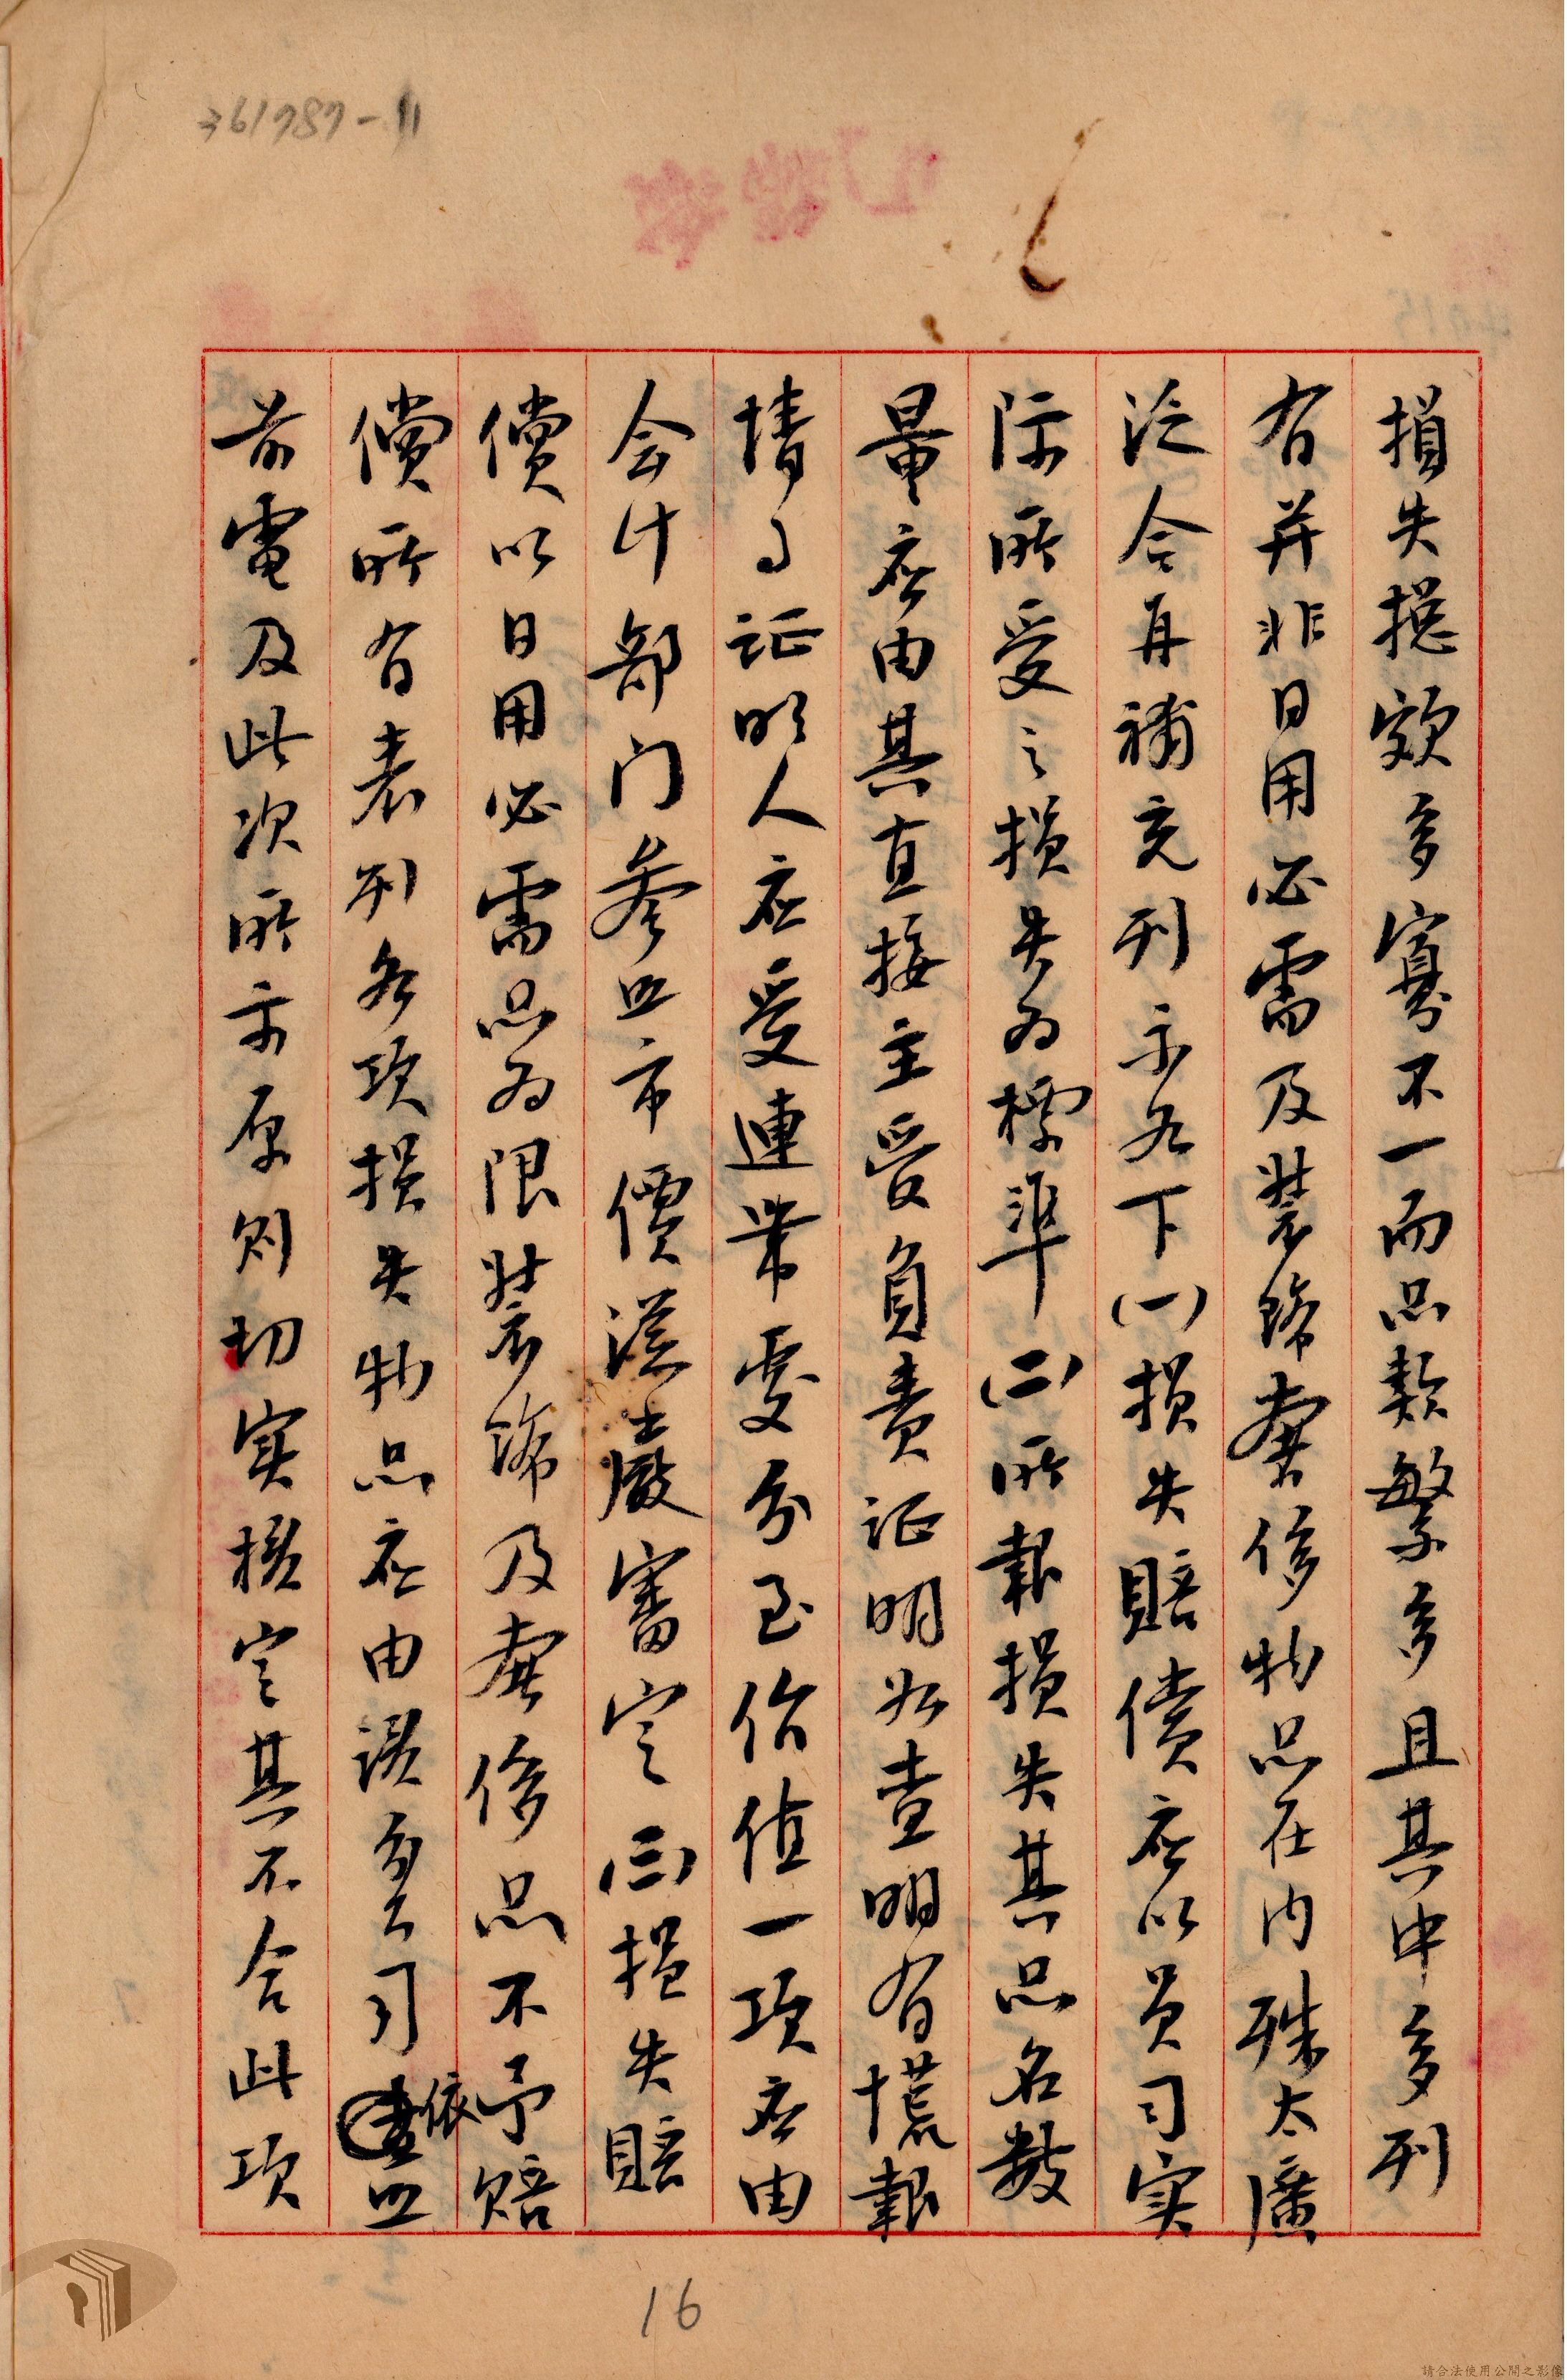 361787-11
損失揔額多寡不一而品類繁多且其中多列
有并非日用必需及裝飾奢侈物品在内殊太廣
泛合再補充列示如下(一)損失賠償应以員司實
际所受之損失為標準(二)所報損失其品名数
量应由其直接主管負責证明如查明有慌報
情事证明人应受連帶處分至估值一項应由
会计部门參照市價從嚴審定(三)損失賠
償以日用必需品為限裝飾及奢侈品不予賠
償所有表列各項損失物品应由該員司依照
前電及此次所示原則切实擬定其不合此項
16
請合法使用公開之影像